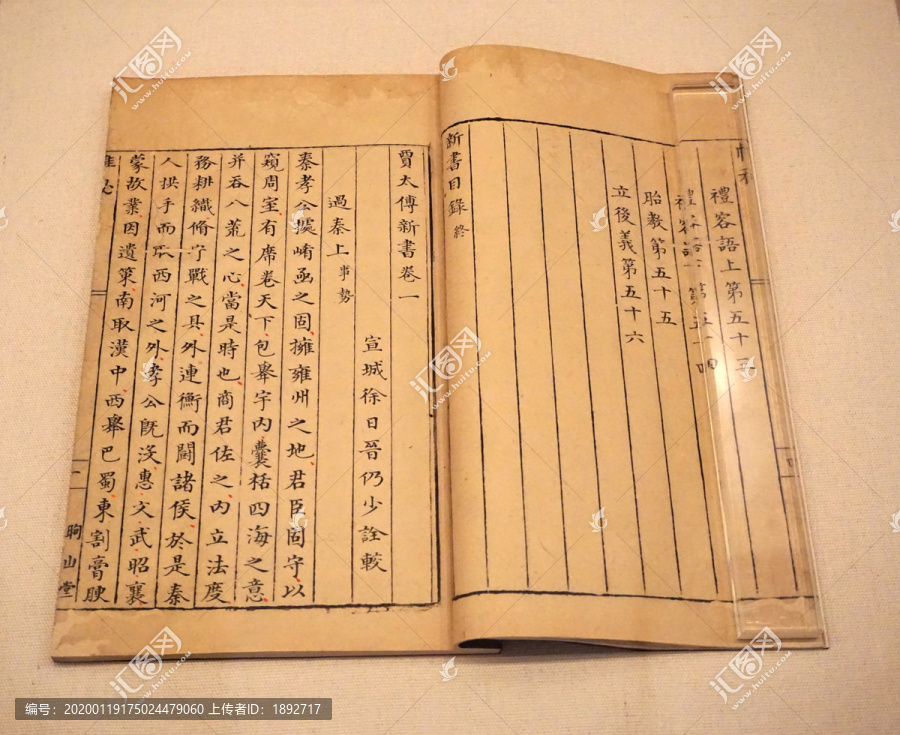 禮容語上第五十三
禮容語下第五十四
胎教第五十五
立後義第五十六
新書目錄 終
賈太傅新書卷一
宣城徐日晉仍少詮較
過秦上 事勢
秦孝公據崤函之固擁雍州之地君臣固守以
窺周室有席卷天下包舉宇內囊括四海之意
并吞八荒之心當是時也商君佐之內立法度
務耕織脩守戰之具外連衡而鬭諸侯於是秦
人拱手而取西河之外孝公既沒惠文武昭襄
蒙故業因遺策南取漢中西舉巴蜀東割膏腴
朐山堂
汇图网
www.huitu.com
编号：20200119175024479060 上传者ID：1892717